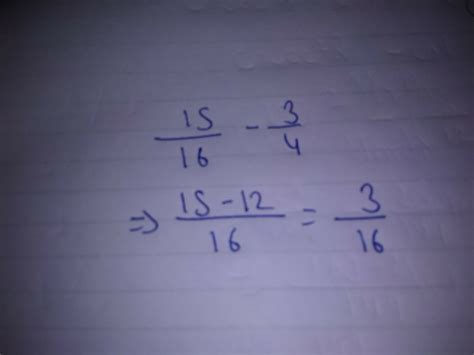 15/16 - 3/4
⇒ 15-12/16 = 3/16